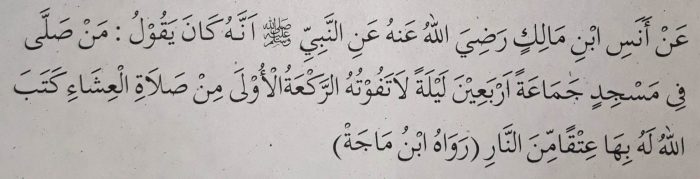 عَنْ أَنَسِ ابْنِ مَالِكٍ رَضِيَ اللّٰهُ عَنهُ عَنِ النَّبِيِّ ﷺ اَنَّهُ كَانَ يَقُوْلُ : مَنْ صَلَّى
فِى مَسْجِدٍ جَمَاعَةً اَرْبَعِيْنَ لَيْلَةً لاَتَفُوْتُهُ الرَّكْعَةُالْأُوْلَى مِنْ صَلَاةِ الْعِشَاءِ كَتَبَ
اللّٰهُ لَهُ بِهَا عِتْقًامِّنَ النَّارِ (رَوَاهُ ابْنُ مَاجَةْ)